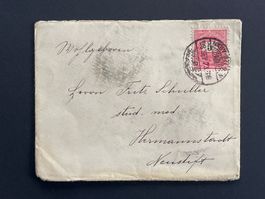 Wohlgeboren
Herrn Fritz Schuller
stud. med
Hermannstadt
Neustift